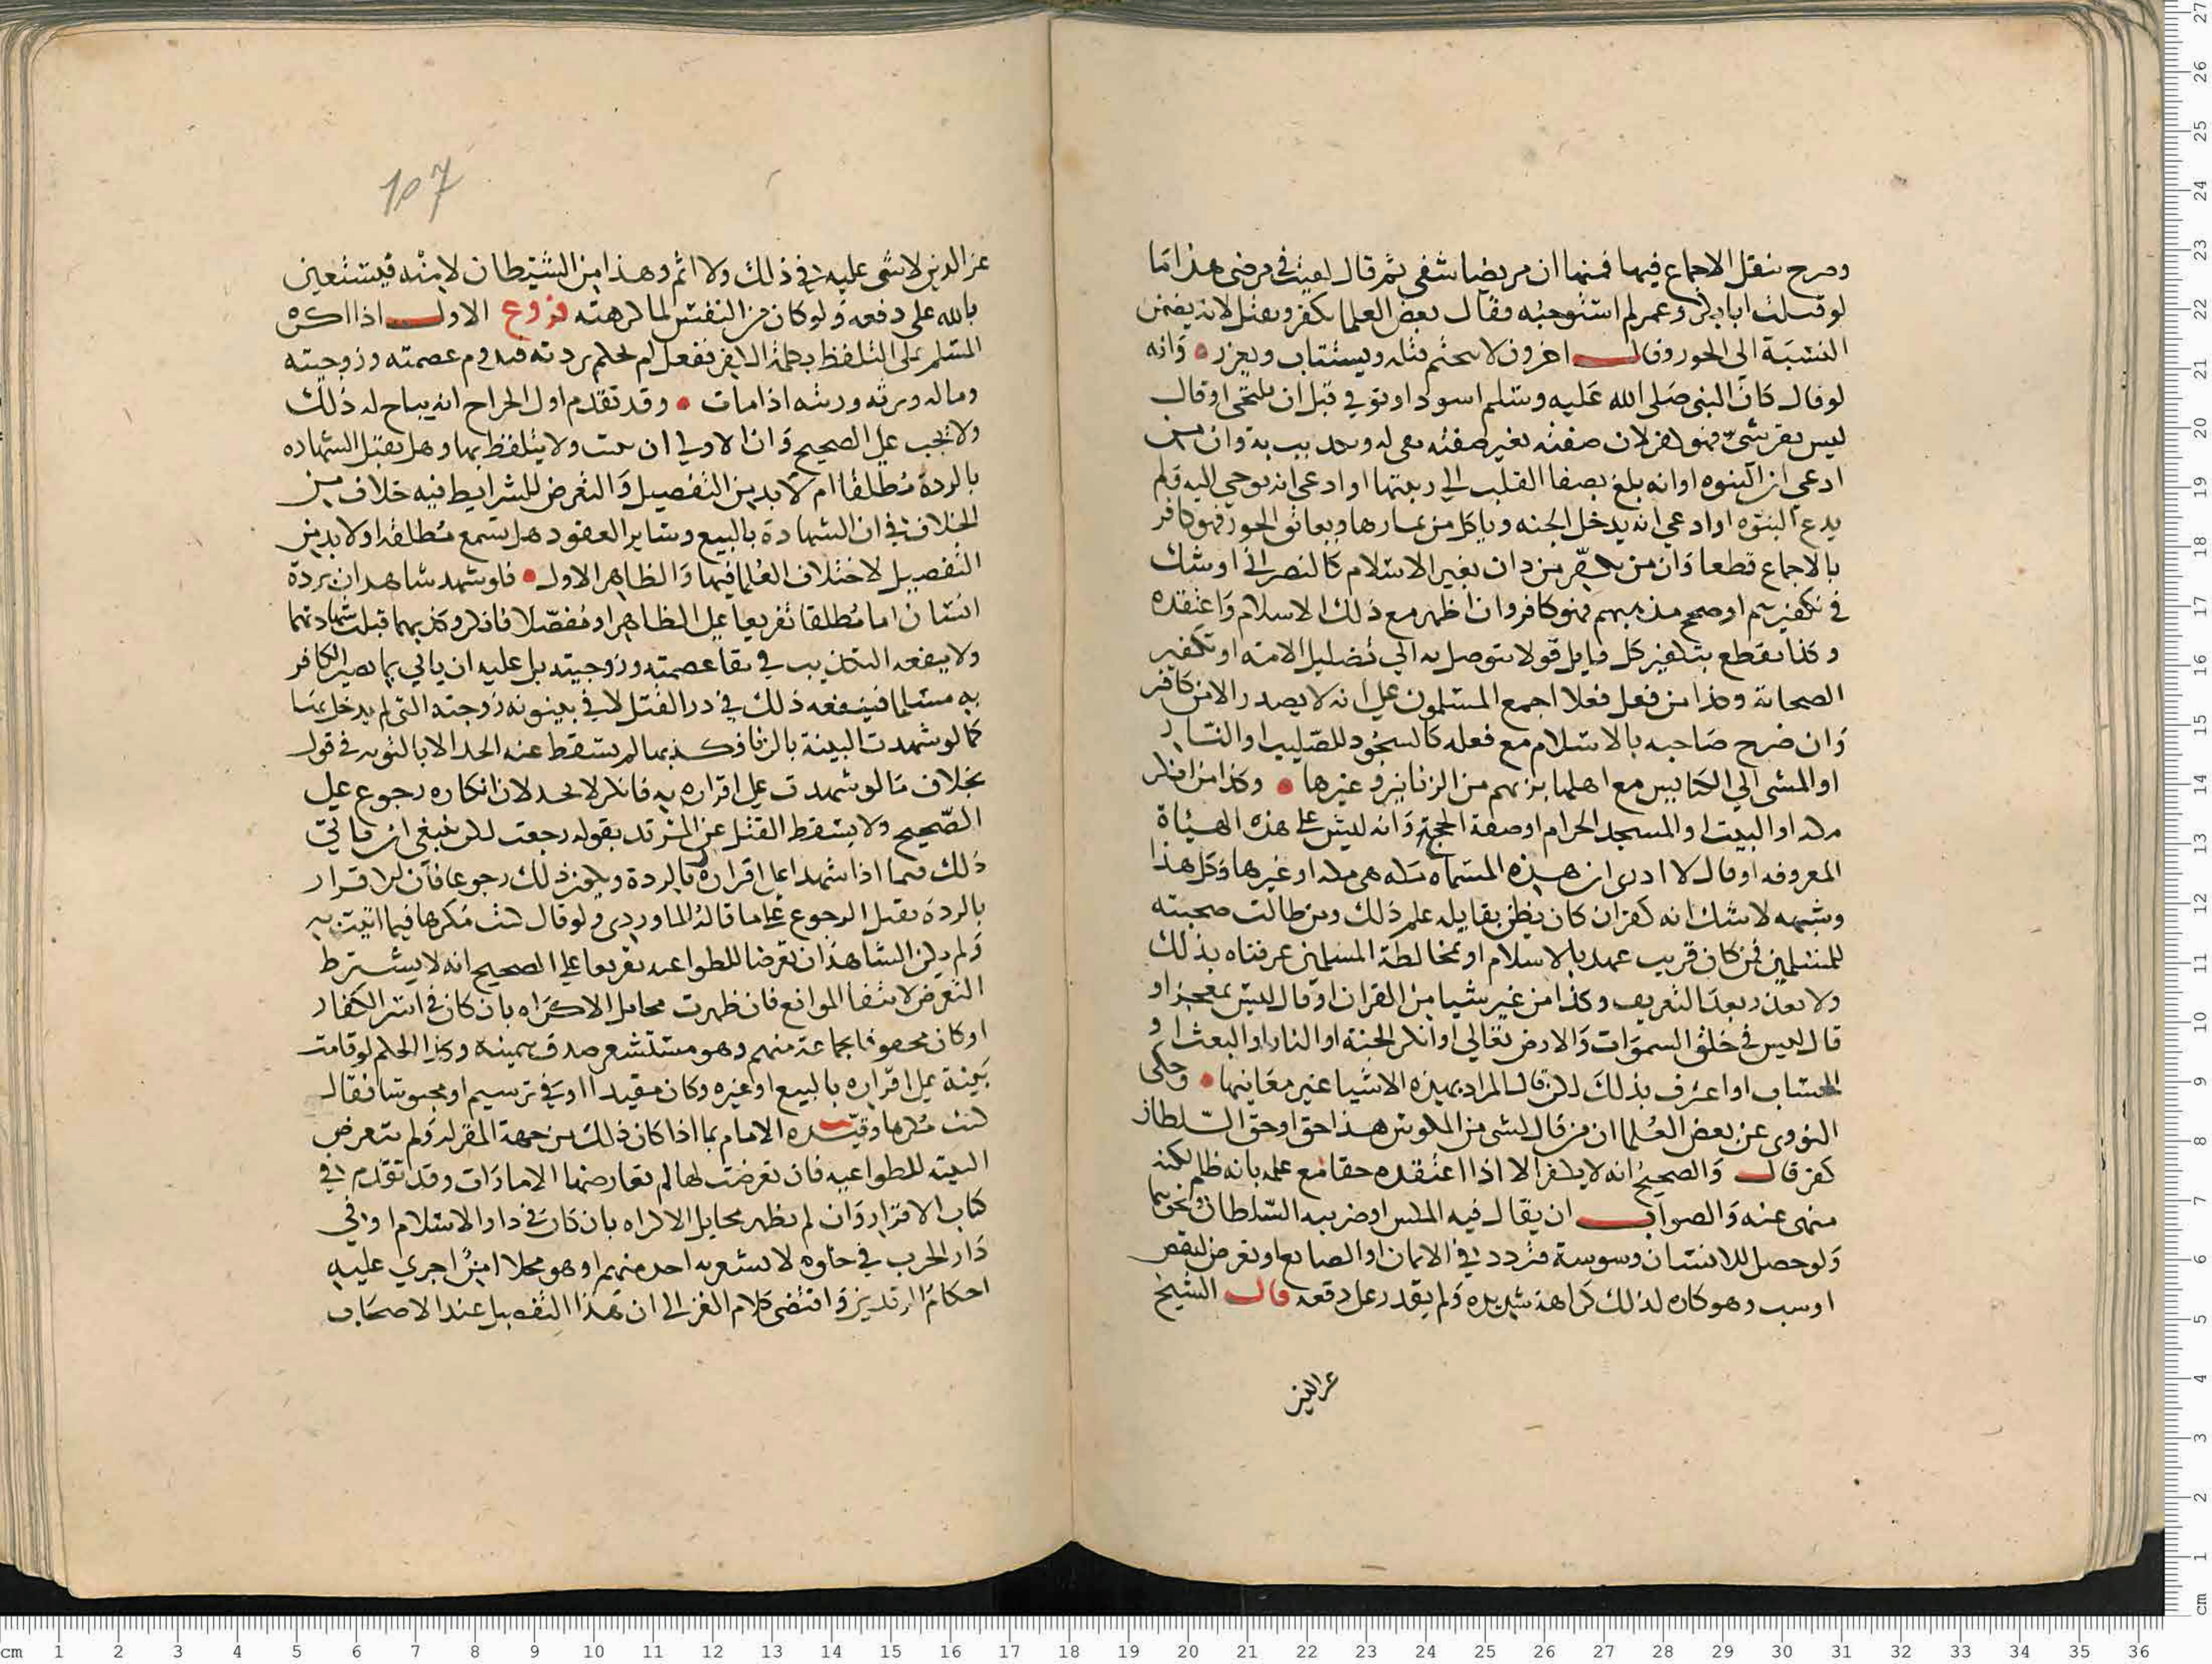 وصرح بنقل الاجماع فيها فمنها ان مريضا شفى ثم قال لقيت في مرضى هذا ما
لو قتلت ابا بكر وعمر لم استوجبه فقال بعض العلما يكفر ويقتل لانه يضمن
النسبة الى الجور وقال اخرون لا يتحتم قتله ويستتاب ويعزر وانه
لو قال كان النبي صلى الله عليه وسلم اسود او توفي قبل ان يلتحى او قال
ليس بقرشي فهو كفر لان صفته بغير صفته نفي له وتكذيب به وان من
ادعى ان النبوه او انه بلغ بصفا القلب الي رتبتها او ادعى انه يوحي اليه ولم
يدع النبوه او ادعي انه يدخل الجنه وياكل من ثمارها ويعانق الحور فهو كافر
بالاجماع قطعا وان من لم يكفر من دان بغير الاسلام كالنصراني او شك
في تكفيرهم او صحح مذهبهم فهو كافر وان اظهر مع ذلك الاسلام واعتقده
وكذا نقطع بتكفير كل قايل قولا يتوصل به الي تضليل الامة او تكفير
الصحابة وكذا من فعل فعلا اجمع المسلمون علي انه لا يصدر الا من كافر
وان صرح صاحبه بالاسلام مع فعله كالسجود للصليب او النار
او المشى الي الكنايس مع اهلها بزيهم من الزنانير وغيرها وكذا من انكر
مكه او البيت او المسجد الحرام او صفة الحج وانه ليس على هذه الهيئاة
المعروفه او قال لا ادرى ان هذه المسماه بمكه هي مكه او غيرها فكل هذا
وشبهه لا شك انه كفر ان كان يظن بقايله علم ذلك ومن طالت صحبته
للمسلمين فمن كان قريب عهد بالاسلام او بمخالطة المسلمين عرفناه بذلك
ولا يعذر بعد التعريف وكذا من غير شيا من القران او قال ليس بمعجز او
قال ليس في خلق السموات والارض تعالي او انكر الجنة او النار او البعث او
الحساب او اعترف بذلك لكن قال المراد بهذه الاشيا غير معانيها وحكى
النووى عن بعض العلما ان من قال لشى من المكوس هذا حق او حق السلطان
كفر قال والصحيح انه لا يكفر الا اذا اعتقده حقا مع علمه بانه ظلم لكنه
منهى عنه والصواب ان يقال فيه المكس او ضريبه السلطان ونحوها
ولو حصل للانسان وسوسة فتردد في الايمان او الصانع او تعرض لنقص
او سب وهو كاره لذلك كراهة شديده ولم يقدر على دفعه قال الشيخ
عز الدين
107
عز الدين لا شى عليه في ذلك ولا اثم وهذا من الشيطان لا منه فيستعين
بالله على دفعه ولو كان من النفس لما كرهته فروع الاول اذا اكره
المسلم على التلفظ بكلمة الكفر ففعل لم يحكم بردته فتدوم عصمته وزوجيته
وماله ويرثه ورثته اذا مات وقد تقدم اول الجراح انه يباح له ذلك
ولا يجب علي الصحيح وان الاولي ان يثبت ولا يتلفظ بها وهل تقبل الشهاده
بالردة مطلقا ام لا بد من التفصيل والتعرض للشرايط فيه خلاف من
الخلاف في ان الشهادة بالبيع وساير العقود هل تسمع مطلقه او لا بد من
التفصيل لاختلاف العلما فيها والظاهر الاول فلو شهد شاهدان بردة
انسان اما مطلقا تفريعا علي الظاهر او مفصلا فانكر وكذبهما قبلت شهادتهما
ولا ينفعه التكذيب في بقا عصمته وزوجيته بل عليه ان ياتي بما يصير الكافر
به مسلما فينفعه ذلك في درا القتل لا في بينونه زوجته التى لم يدخل بها
كما لو شهدت البينة بالزنا فكذبها لم يسقط عنه الحد الا بالتوبه في قول
بخلاف ما لو شهدت علي اقراره به فانكر لا يحد لان انكاره رجوع علي
الصحيح ولا يسقط القتل عن المرتد بقوله رجعت لكن ينبغي ان ياتي
ذلك فيما اذا شهدا على اقراره بالردة ويكون ذلك رجوعا فان الاقرار
بالردة يقبل الرجوع على ما قاله الماوردى ولو قال كنت مكرها فيما اتيت به
ولم يكن الشاهدان تعرضا للطواعيه تفريعا علي الصحيح انه لا يشترط
التعرض لانتفا الموانع فان ظهرت مخايل الاكراه بان كان في اسر الكفار
او كان محفوفا بجماعة منهم وهو مستشعر صدق بيمينه وكذا الحكم لو قامت
بينة علي اقراره بالبيع او غيره وكان مقيدا او في ترسيم او محبوسا فقال
كنت مكرها وقيده الامام بما اذا كان ذلك من جهة المقر له ولم تتعرض
البينه للطواعيه فان تعرضت لها لم تعارضها الامارات وقد تقدم في
كتاب الاقرار وان لم تظهر مخايل الاكراه بان كان في دار الاسلام او في
دار الحرب في خلوه لا يشعر به احد منهم او هو مخلا امن اجري عليه
احكام المرتدين واقتضى كلام الغزالي ان هذا التفصيل عند الاصحاب